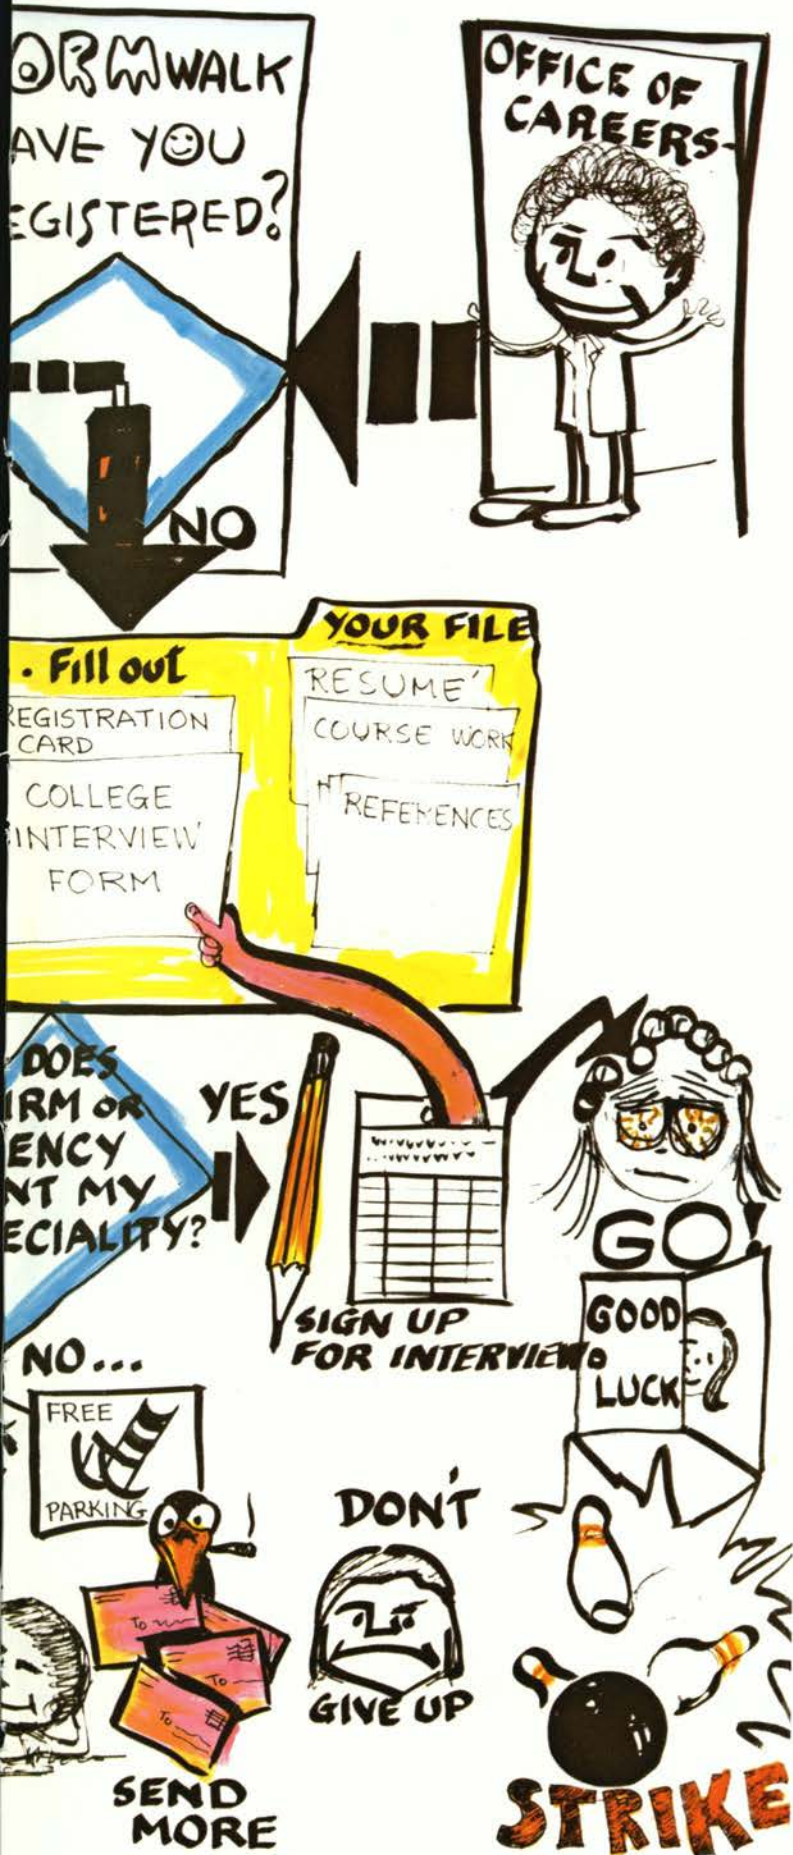 ORMWALK
AVE YOU
EGISTERED?
NO
OFFICE OF
CAREERS-
YOUR FILE
. Fill out
REGISTRATION
CARD
COLLEGE
INTERVIEW
FORM
RESUME'
COURSE WORK
REFERENCES
DOES
IRM OR
ENCY
NT MY
ECIALITY?
YES
SIGN UP
FOR INTERVIEW.
GO!
GOOD
LUCK
NO...
FREE
PARKING
To
To
To
SEND
MORE
DON'T
GIVE UP
STRIKE